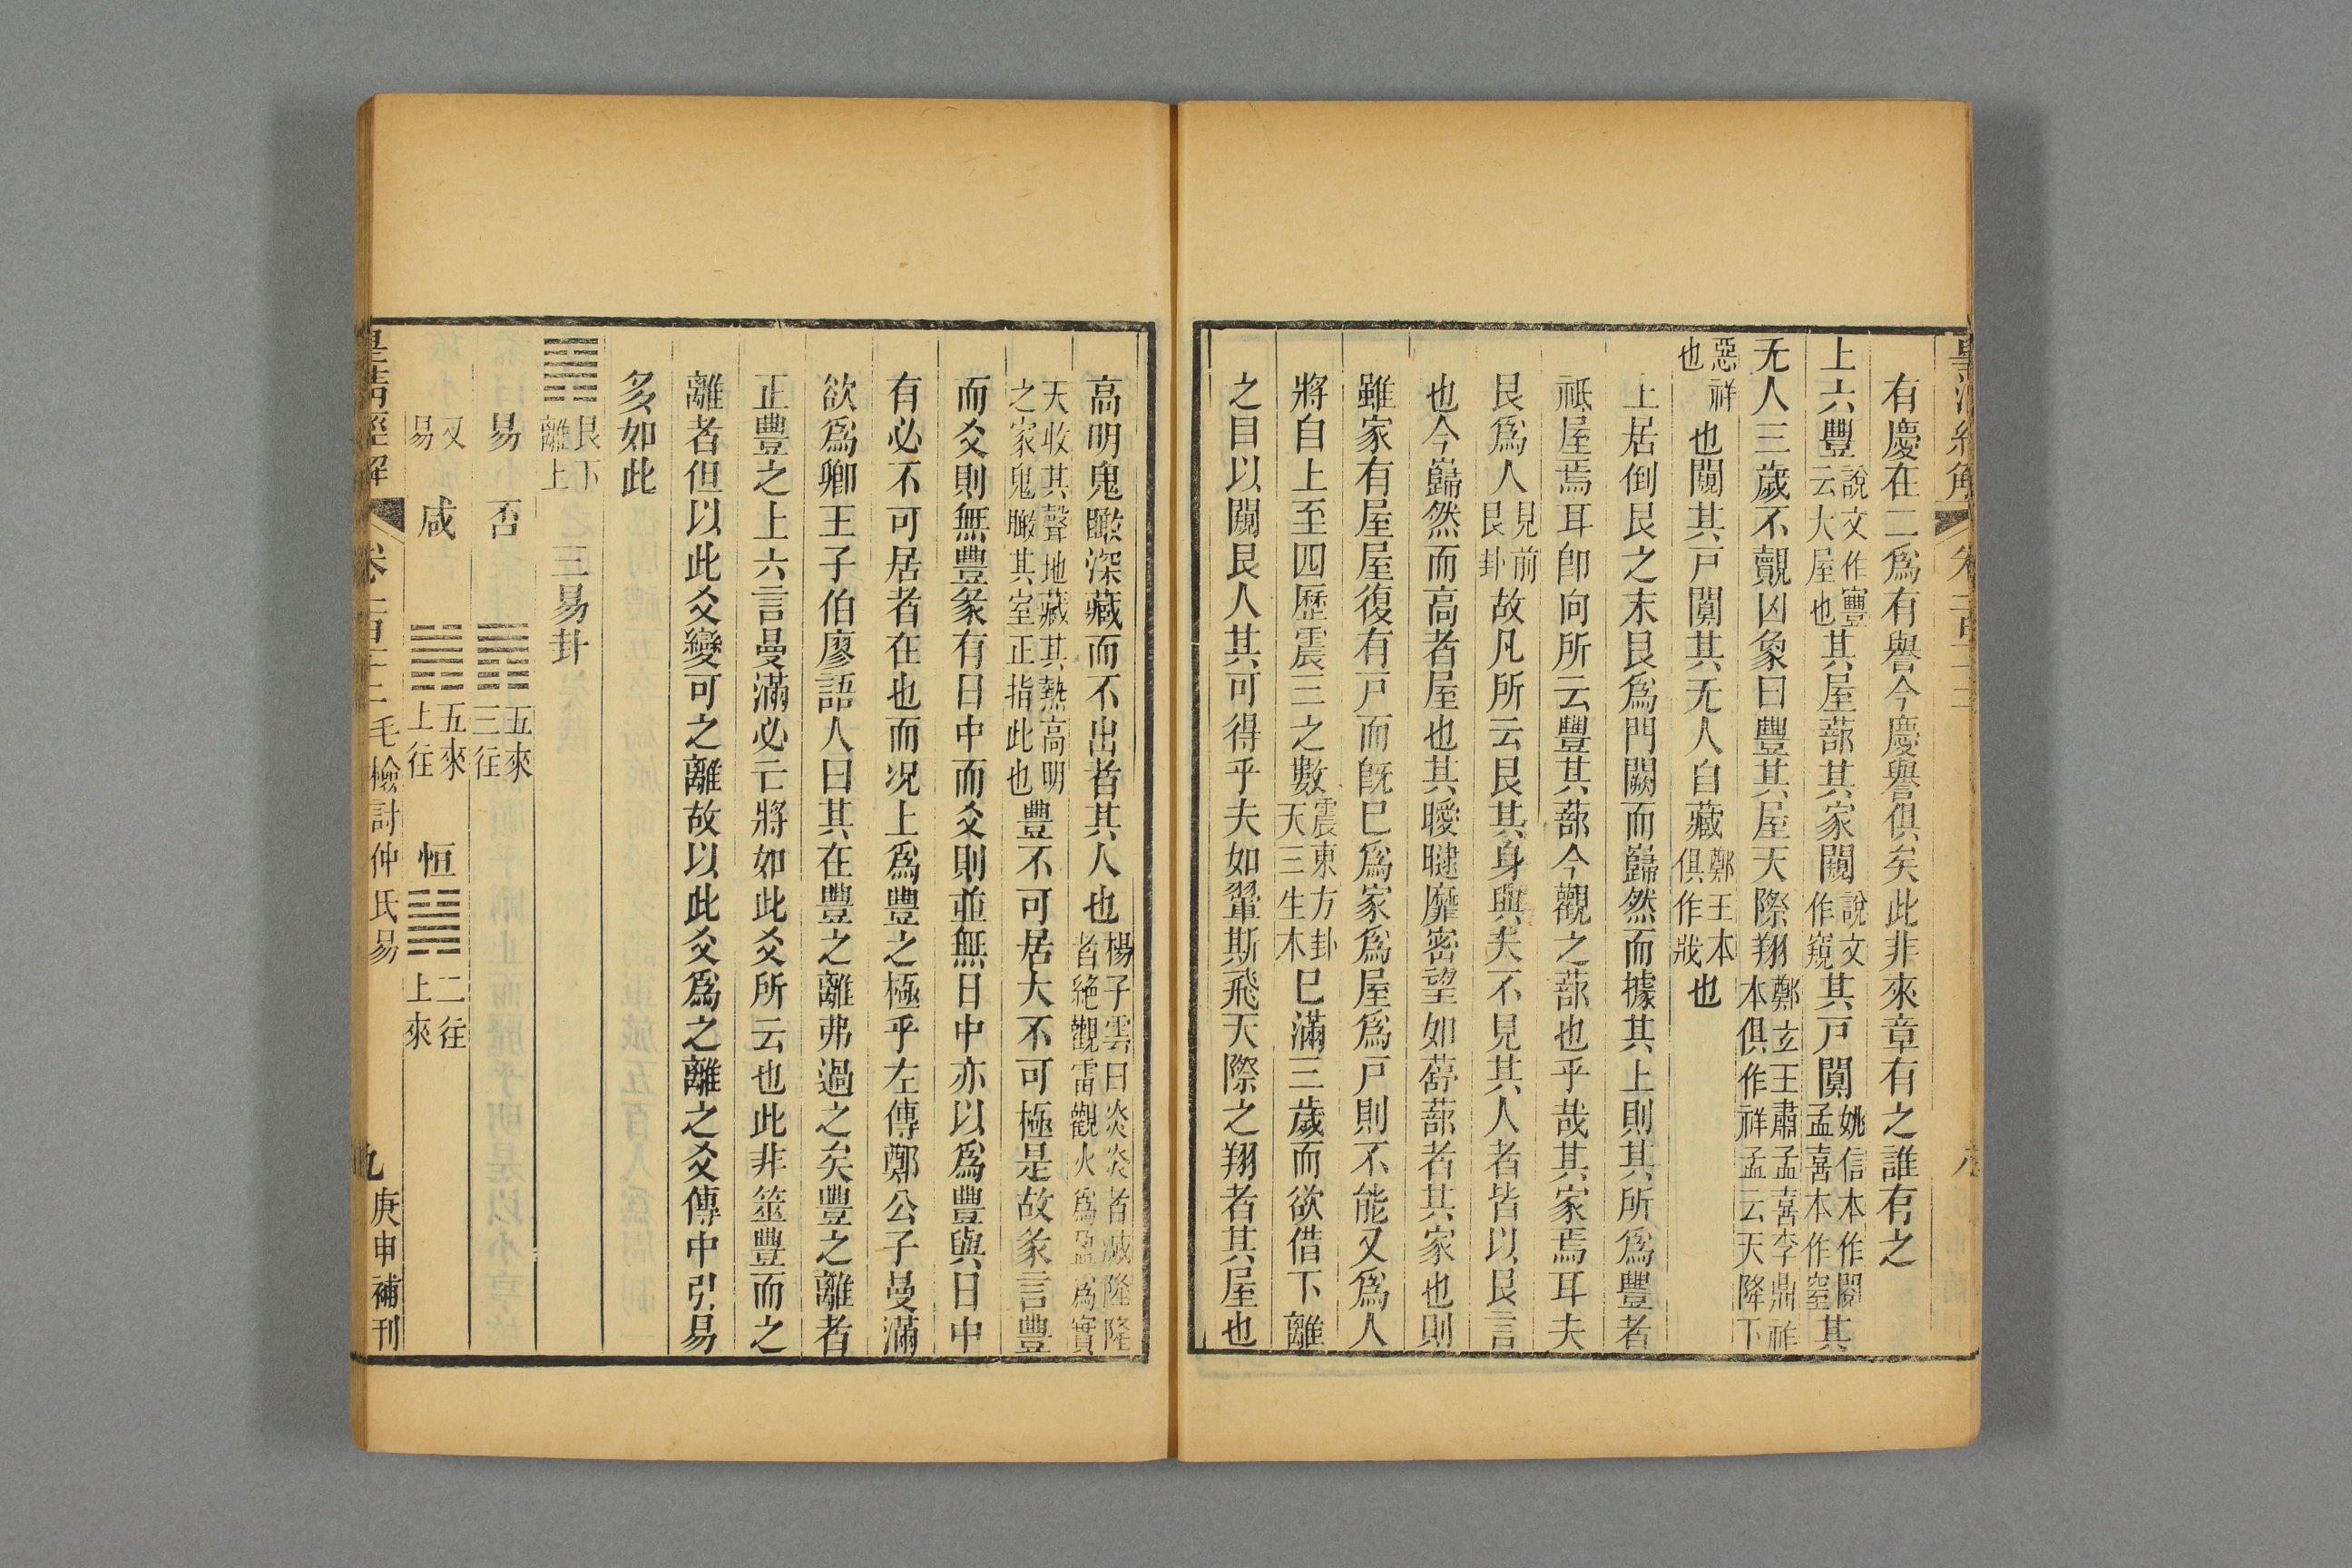 有慶在二爲有譽今慶譽俱矣此非來章有之誰有之
上六豐說文作寷云大屋也其屋蔀其家闚說文作窺其戸闃姚信本作闃孟喜本作窒其
无人三歲不覿凶象曰豐其屋天際翔鄭玄王肅孟喜李鼎祚本俱作祥孟云天降下
惡祥也也闚其戸闃其无人自藏鄭王本俱作戕也
上居倒艮之末艮爲門闕而巋然而據其上則其所爲豐者
祗屋焉耳卽向所云豐其蔀今觀之蔀也乎哉其家焉耳夫
艮爲人見前艮卦故凡所云艮其身與夫不見其人者皆以艮言
也今巋然而高者屋也其曖曃靡密望如蔀蔀者其家也則
雖家有屋屋復有戸而旣巳爲家爲屋爲戸則不能又爲人
將自上至四歷震三之數震東方卦天三生木巳滿三歲而欲借下離
之目以闚艮人其可得乎夫如翬斯飛天際之翔者其屋也
高明鬼瞰深藏而不出者其人也楊子雲曰炎炎者滅隆隆者絶觀雷觀火爲盈爲實
天收其聲地藏其熱高明之家鬼瞰其室正指此也豐不可居大不可極是故彖言豐
而爻則無豐彖有日中而爻則並無日中亦以爲豐與日中
有必不可居者在也而况上爲豐之極乎左傳鄭公子曼滿
欲爲卿王子伯廖語人曰其在豐之離弗過之矣豐之離者
正豐之上六言曼滿必亡將如此爻所云也此非筮豐而之
離者但以此爻變可之離故以此爻爲之離之爻傳中引易
多如此
䷷艮下離上 三易卦
易 否䷋五來三往
又易 咸䷞五來上往 恒䷟二往上來
皇清經解 卷一百十二 毛檢討仲氏易 九 庚申補刊